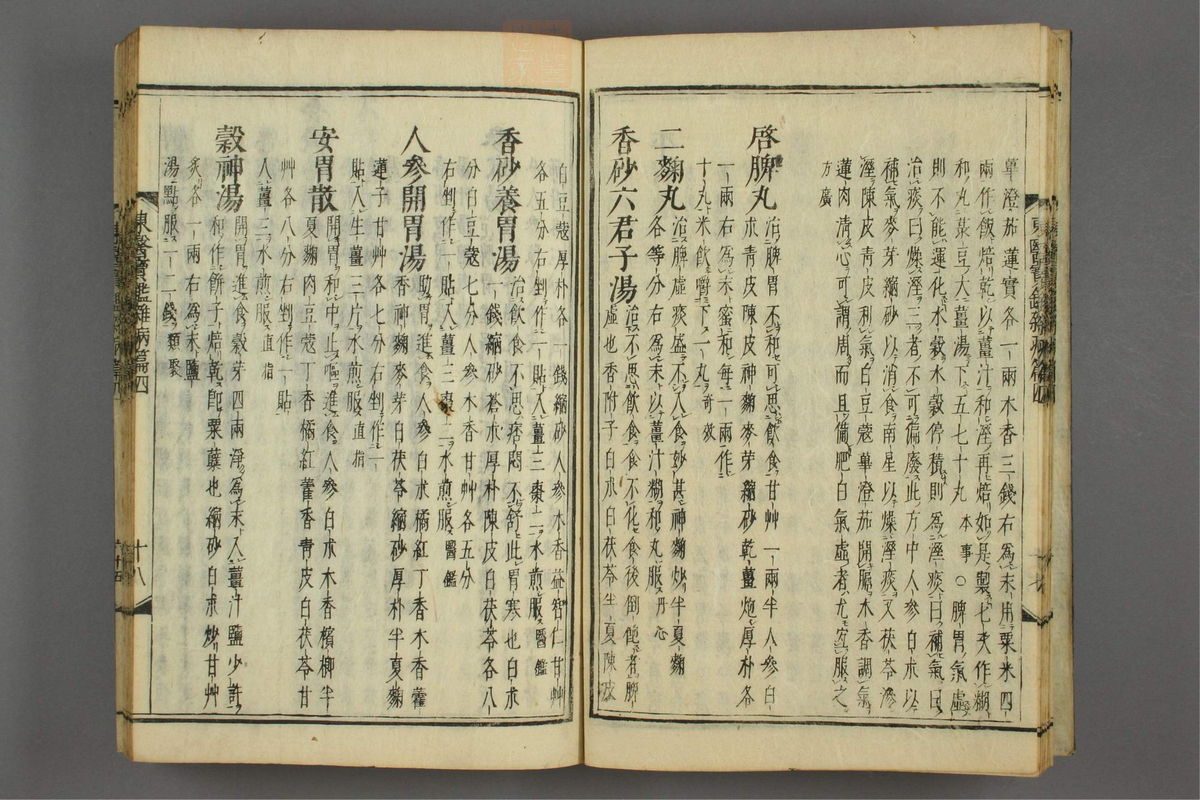 蓽澄茄蓮實各一兩木香三錢右爲末用粟米四
兩作飯焙乾以薑汁和溼再焙如是製七次作糊
和丸菉豆大薑湯下五七十丸本事○脾胃氣虛
則不能運化水穀水穀停積則爲溼痰曰補氣曰
治痰曰燥溼三者不可偏廢此方中人參白朮以
補氣麥芽縮砂以消食南星以燥溼痰又茯苓滲
溼陳皮靑皮利氣白豆蔻蓽澄茄開膈木香調氣
蓮肉淸心可謂周而且備肥白氣虛者尤宜服之
方廣
啓脾丸 治脾胃不和可思飮食甘艸一兩半人參白
朮靑皮陳皮神麴麥芽縮砂乾薑炮厚朴各
一兩右爲末蜜和每一兩作
十丸米飮嚼下一丸奇效
二麴丸 治脾虛痰盛不入食妙甚神麴炒半夏麴
各等分右爲末以薑汁糊和丸服丹心
香砂六君子湯 治不思飮食食不化食後倒飽者脾
虛也香附子白朮白茯苓半夏陳皮
白豆蔻厚朴各一錢縮砂人參木香益智仁甘艸
各五分右剉作一貼入薑三棗二水煎服醫鑑
香砂養胃湯 治飮食不思痞悶不舒此胃寒也白朮
一錢縮砂蒼朮厚朴陳皮白茯苓各八
分白豆蔻七分人參木香甘艸各五分
右剉作一貼入薑三棗二水煎服醫鑑
人參開胃湯 助胃進食人參白朮橘紅丁香木香藿
香神麴麥芽白茯苓縮砂厚朴半夏麴
蓮子甘艸各七分右剉作一
貼入生薑三片水煎服直指
安胃散 開胃和中止嘔進食人參白朮木香檳榔半
夏麴肉豆蔻丁香橘紅藿香靑皮白茯苓甘
艸各八分右剉作一貼
入薑三水煎服直指
穀神湯 開胃進食穀芽四兩淨爲末入薑汁鹽少許
和作餠子焙乾卽粟蘖也縮砂白朮炒甘艸
炙各一兩右爲末鹽
湯點服一二錢類聚
東醫寶鑑雜病篇四
十八